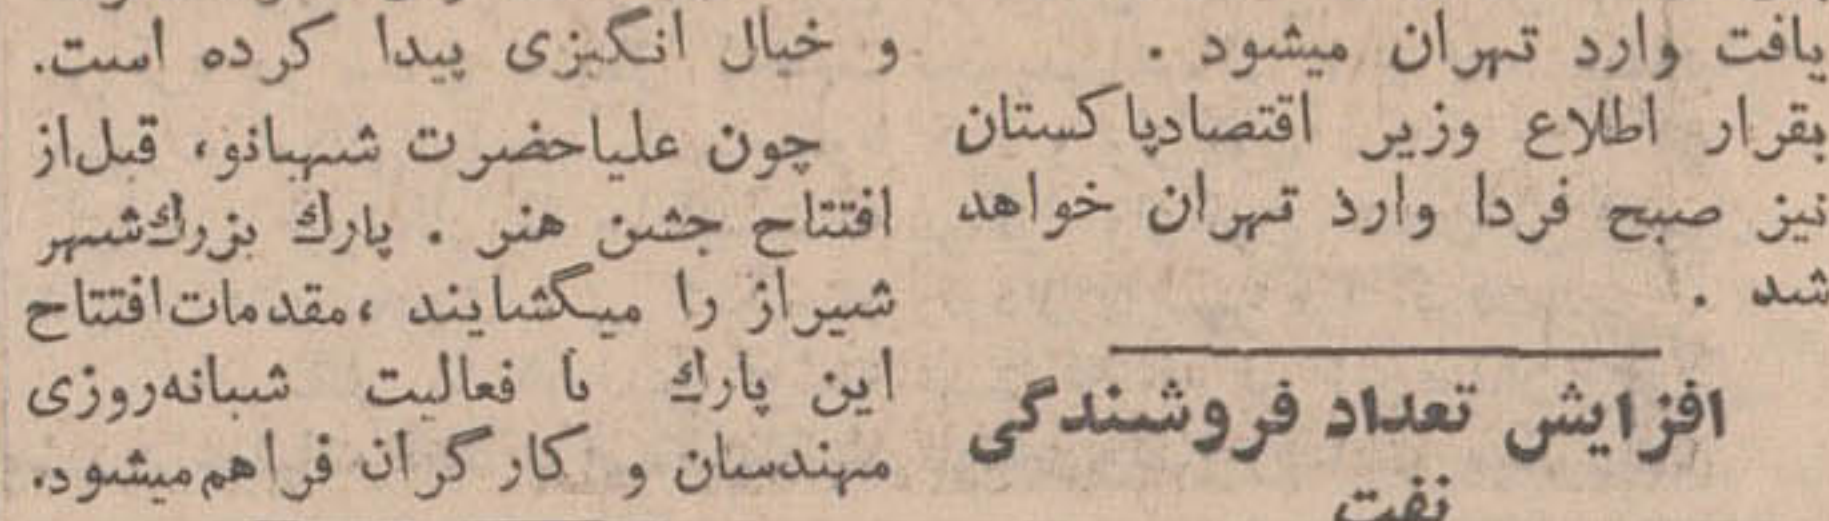 یافت وارد تهران میشود .
بقرار اطلاع وزیر اقتصادپاکستان
نیز صبح فردا وارد تهران خواهد
شد .
افزایش تعداد فروشندگی
نفت
و خیال انگیزی پیدا کرده است.
چون علیاحضرت شهبانو، قبل‌از
افتتاح جشن هنر . پارك بزرك‌شهر
شیراز را میگشایند ،مقدمات‌افتتاح
این پارك با فعالیت شبانه‌روزی
مهندسان و کارگران فراهم‌میشود.